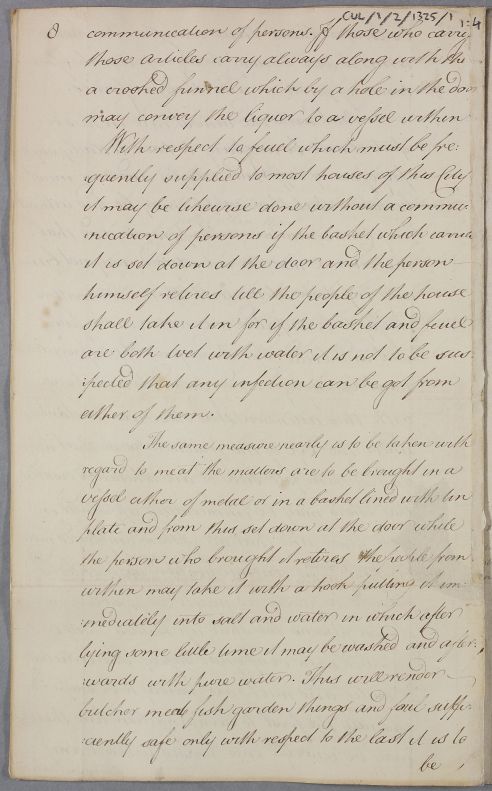 CUL/1/2/1325/1
1:4
8
communication of persons. If those who carry
those articles carry always along with the
a crooked funnel which by a hole in the door
may convey the liquor to a vessel within
With respect to feuel which must be fre:
:quently supplied to most houses of this City
it may be likewise done without a commu
:nication of persons if the basket which carries
it is set down at the door and the person
himself retires till the people of the house
shall take it in for if the basket and feuel
are both wet with water it is not to be sus:
:pected that any infection can be got from
either of them.
The same measure nearly is to be taken with
regard to meat the matters are to be brought in a
vessel either of metal or in a basket lined with tin
plate and from this set down at the door while
the person who brought it retires the people from
within may take it with a hook putting it im
:mediately into salt and water in which after
lying some little time it may be washed and after:
:wards with pure water. This will rendor
butcher meat fish garden things and foul suffi:
:ciently safe only with respect to the last it is to
be